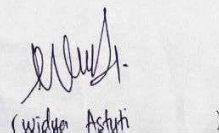 (Widya Astuti